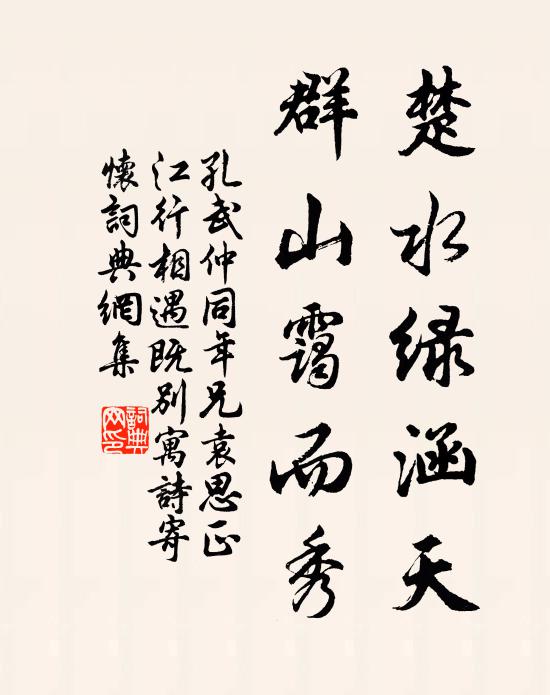 楚水绿涵天
群山霭而秀
孔武仲同年兄袁思正
江行相遇既别寓詩寄
懷詞典網集
詞典网印